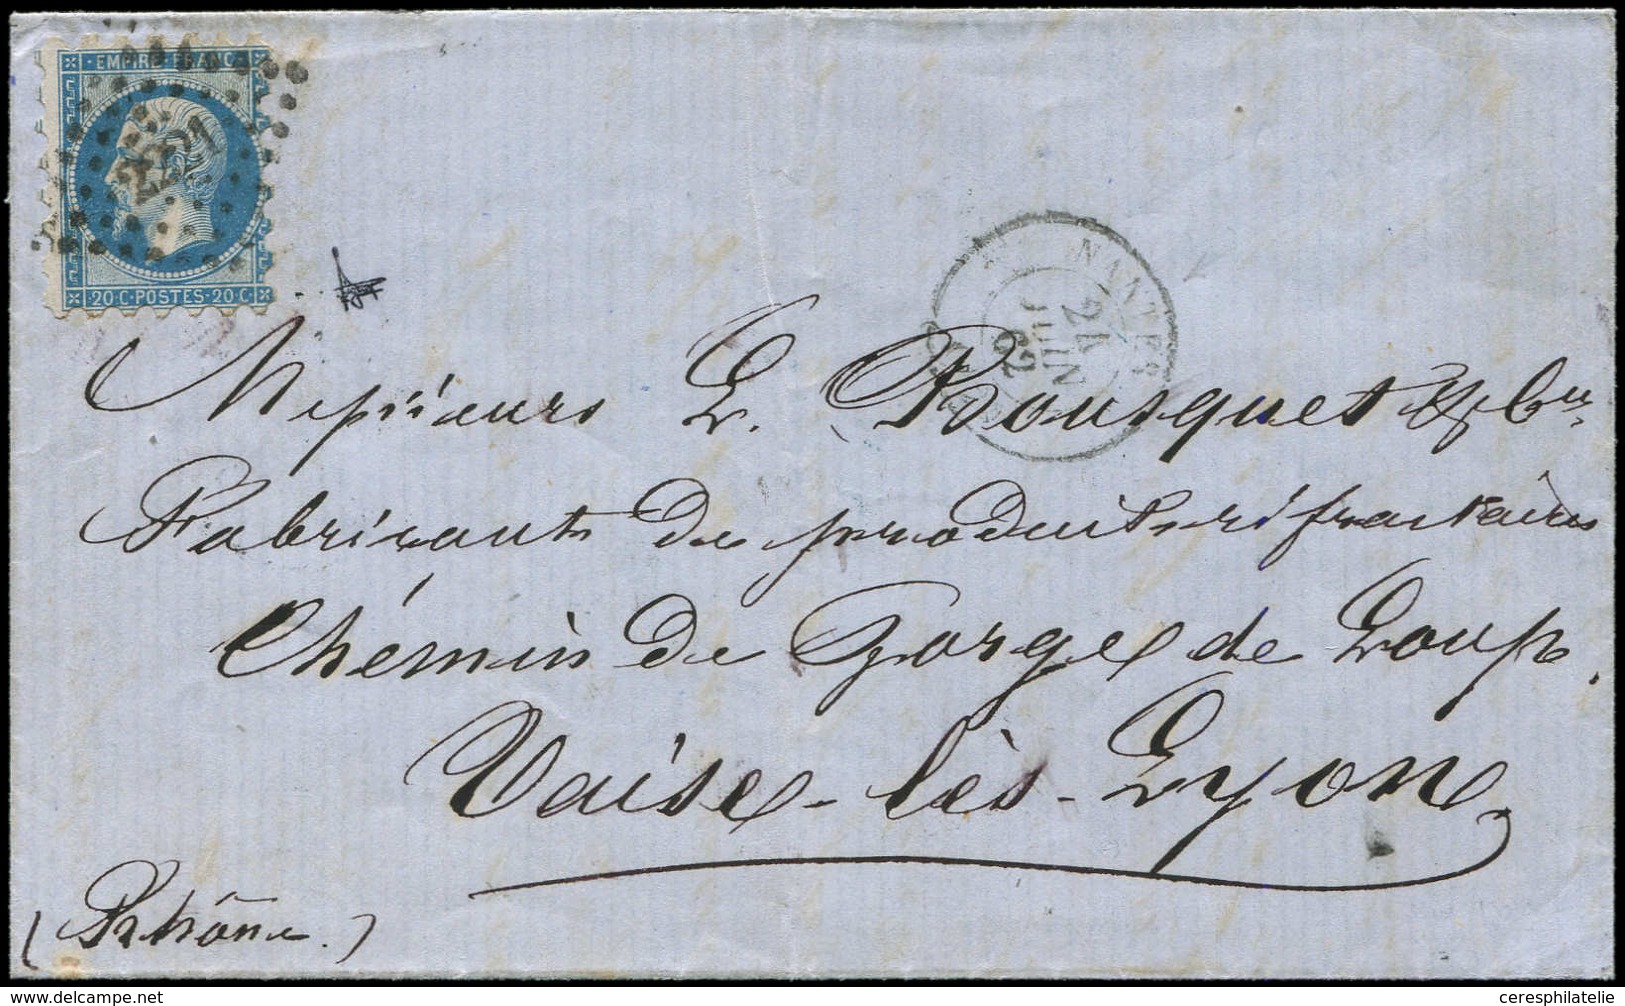 EMPIRE FRANC
2221
20 C POSTES 20 C
NANTES
24
JUIN
62
Messieurs L. Rousquet & Cie
Fabricants de produits réfractaires
Chémin de Gorge de Loup,
Vaise-lès-Lyon
(Rhône.)
www.delcampe.net
ceresphilatelie